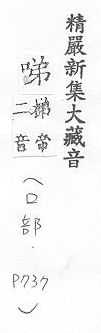 精嚴新集大藏音
㖒
梯帝
二音
（口部．P737）